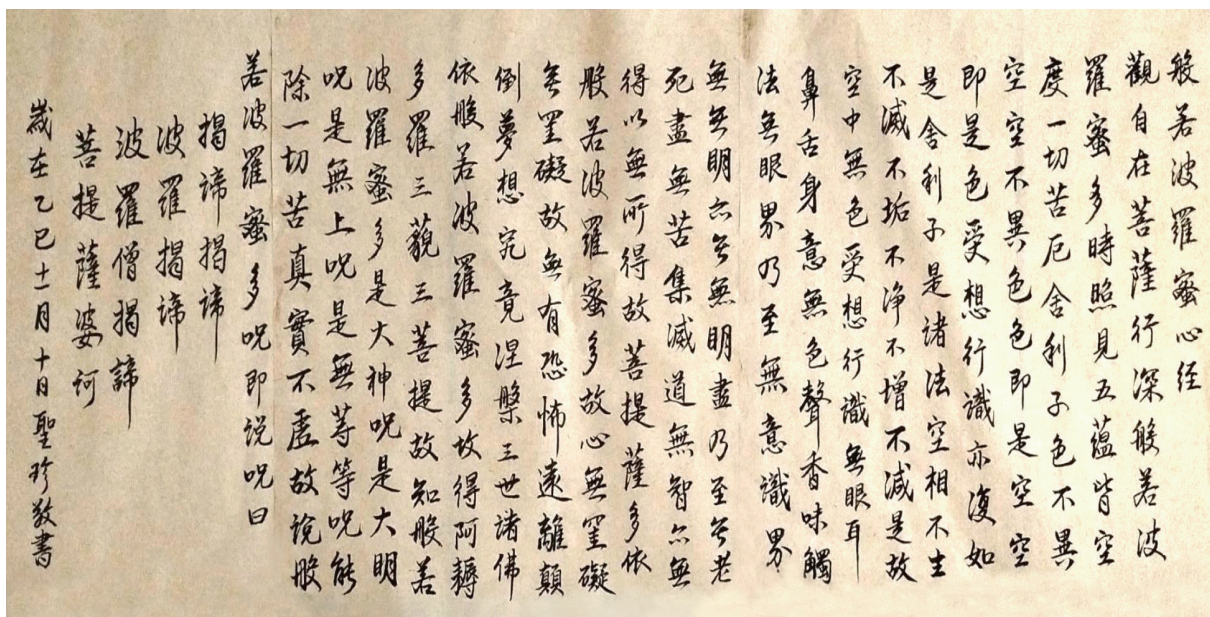 般若波羅蜜心经
觀自在菩薩行深般若波
羅蜜多時照見五蘊皆空
度一切苦厄舍利子色不異
空空不異色色即是空空
即是色受想行識亦復如
是舍利子是諸法空相不生
不滅不垢不净不增不減是故
空中無色受想行識無眼耳
鼻舌身意無色聲香味觸
法無眼界乃至無意識界
無無明亦无無明盡乃至无老
死盡無苦集滅道無智亦無
得以無所得故菩提薩多依
般若波羅蜜多故心無罣礙
無罣礙故無有恐怖遠離顛
倒夢想究竟涅槃三世諸佛
依般若波羅蜜多故得阿耨
多羅三藐三菩提故知般若
波羅蜜多是大神呪是大明
呪是無上呪是無等等呪能
除一切苦真實不虛故說般
若波羅蜜多呪即说呪曰
揭諦揭諦
波羅揭諦
波羅僧揭諦
菩提薩婆訶
嵗在乙巳十一月十日聖珍敬書